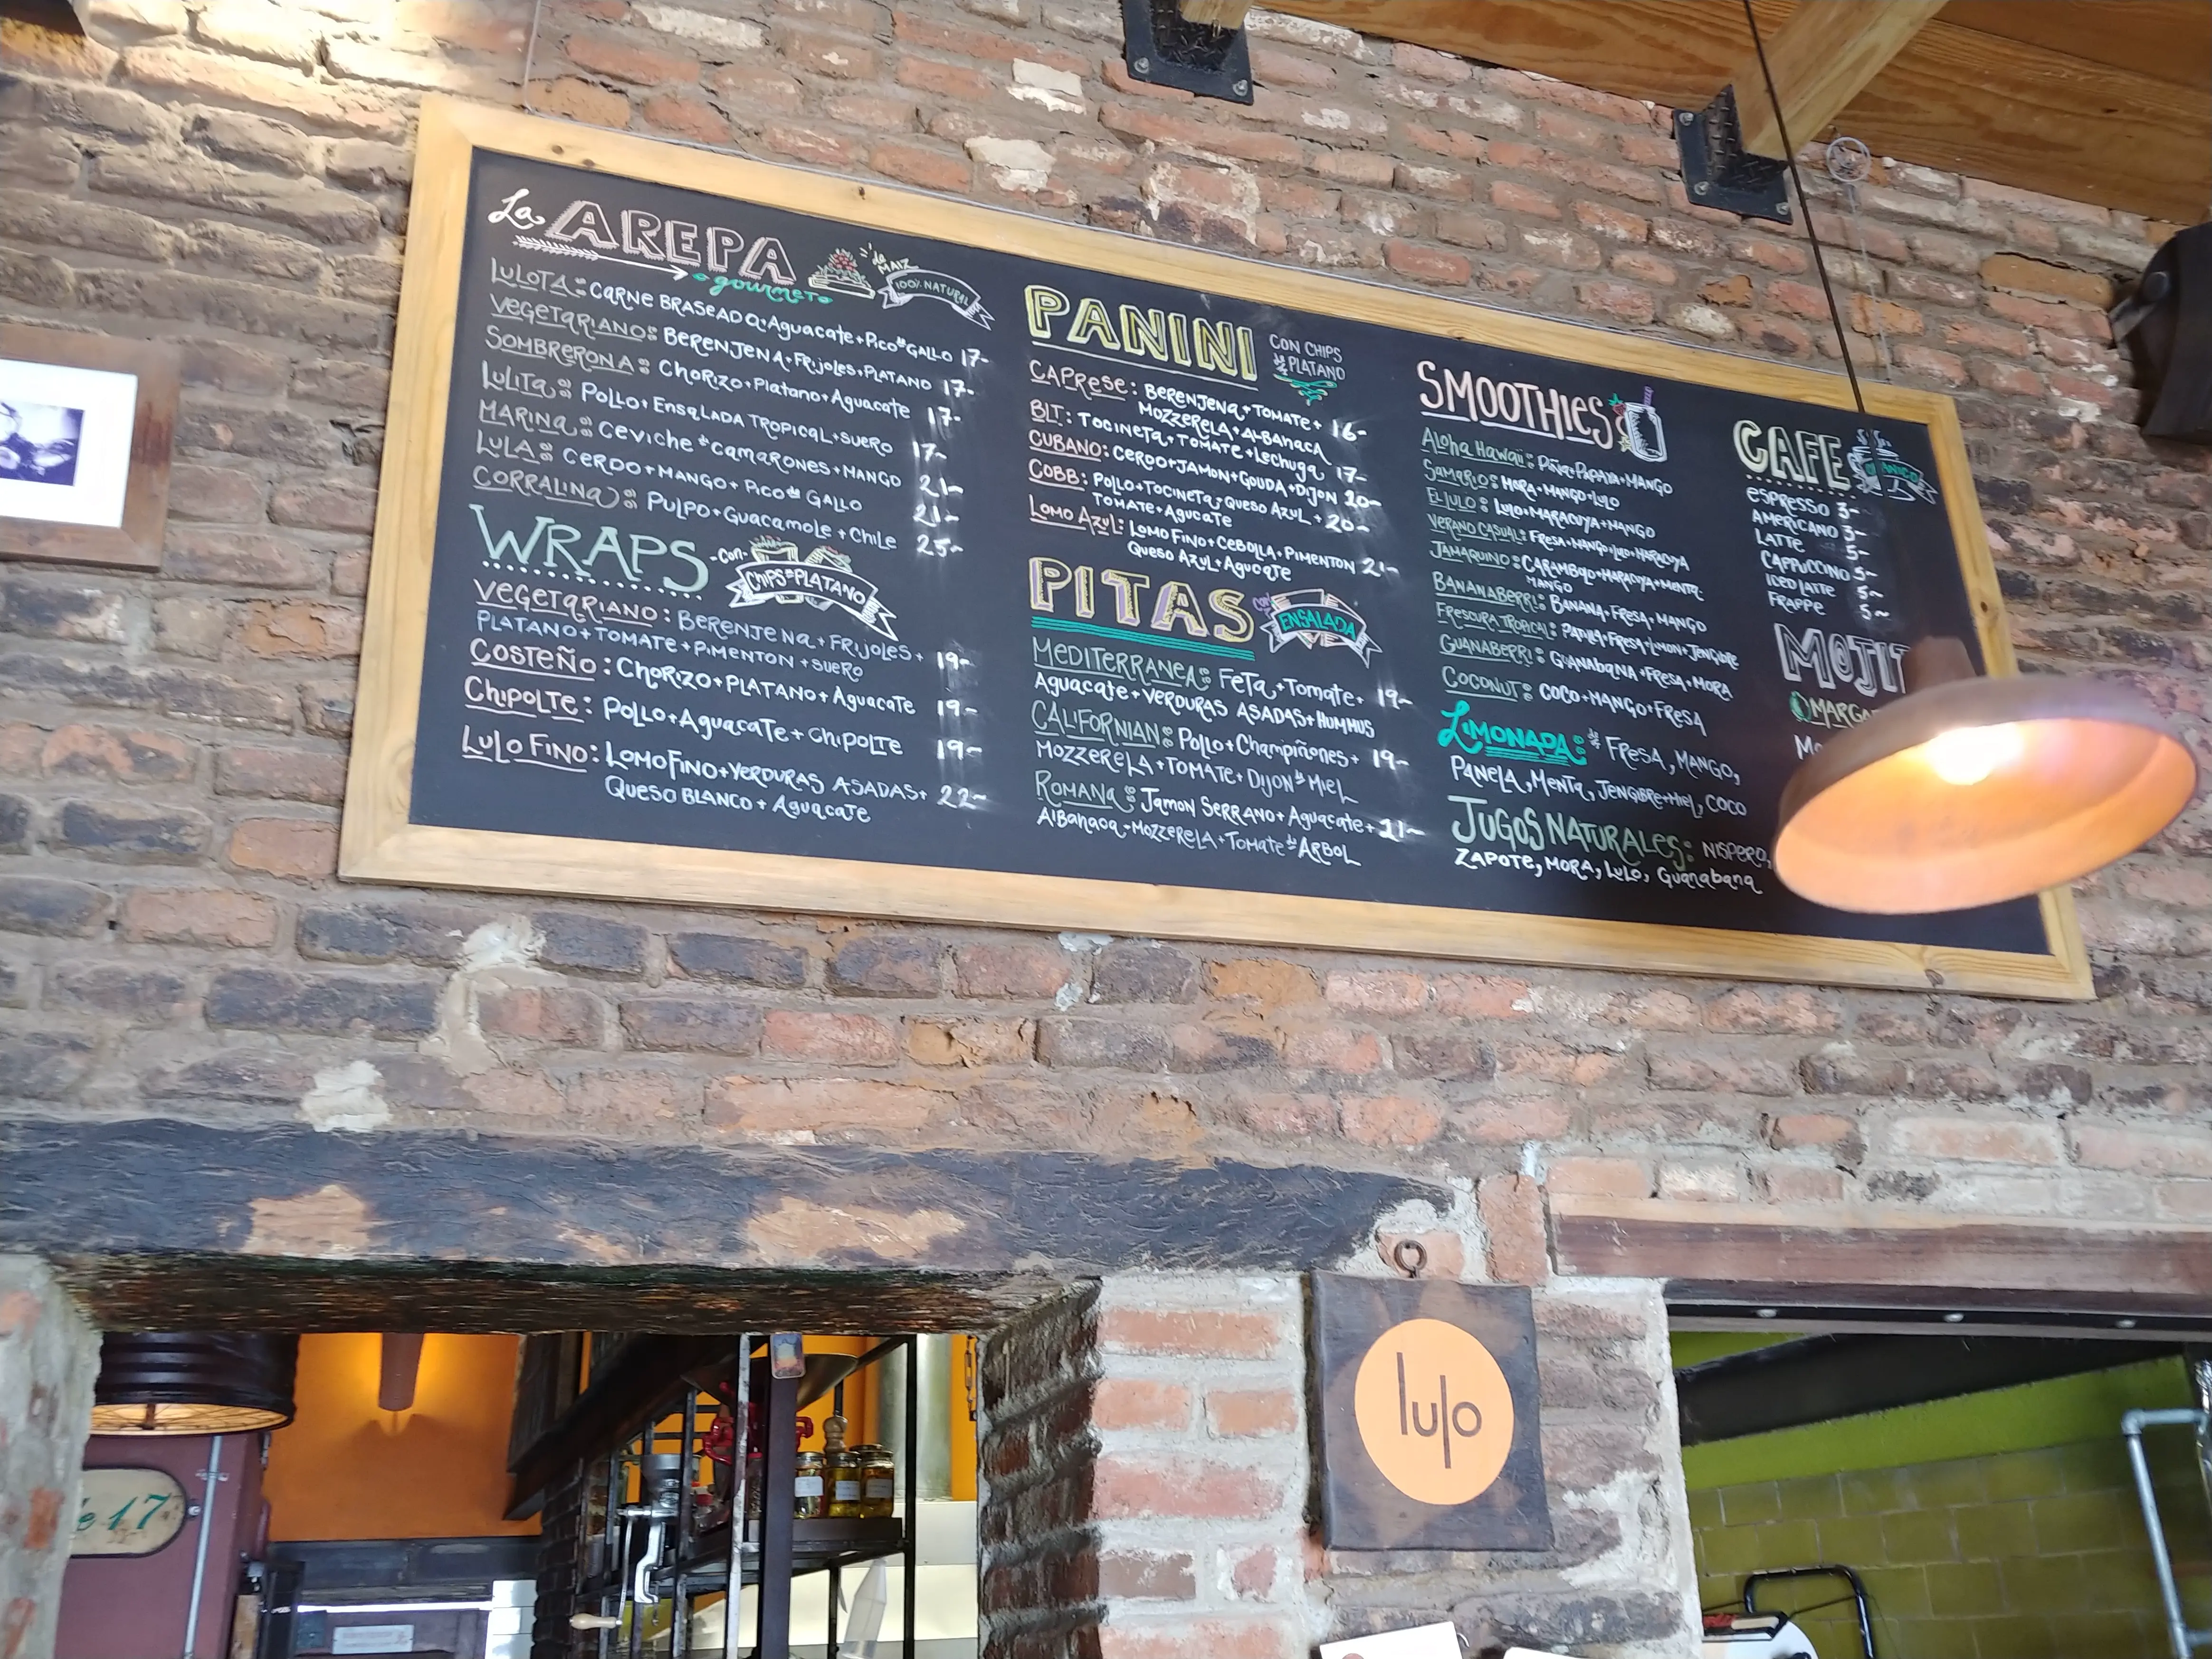 La AREPA
gourmet
de MAIZ
100% NATURAL
LULOTA: CARNE BRASEADA+Aguacate+Pico de GALLO 17-
VEGETARIANO: BERENJENA+FRIJOLES+PLATANO 17-
SOMBRERONA: CHORIZO+Platano+Aguacate 17-
LULITA: POLLO+ENSALADA TROPICAL+SUERO 17-
MARINA: CEVICHE de CAMARONES+MANGO 21-
LULA: CERDO+MANGO+PICO de GALLO 21-
CORRALINA: PULPO+GUACAMOLE+CHILE 25-
WRAPS
-CON-
CHIPS de PLATANO
VEGETARIANO: BERENJENA+FRIJOLES+
PLATANO+TOMATE+PIMENTON+SUERO 19-
COSTEÑO: CHORIZO+PLATANO+Aguacate 19-
CHIPOLTE: POLLO+Aguacate+CHIPOLTE 19-
LULO FINO: LOMO FINO+VERDURAS ASADAS+ 22-
QUESO BLANCO+Aguacate
PANINI
CON CHIPS
de PLATANO
CAPRESE: BERENJENA+TOMATE+ 16-
MOZZERELA+ALBANACA
BLT: TOCINETA+TOMATE+LECHUGA 17-
CUBANO: CERDO+JAMON+GOUDA+DIJON 20-
COBB: POLLO+TOCINETA+QUESO AZUL+ 20-
TOMATE+AGUCATE
LOMO AZUL: LOMO FINO+CEBOLLA+PIMENTON 21-
QUESO AZUL+AGUCATE
PITAS
CON
ENSALADA
MEDITERRANEA: FETA+TOMATE+ 19-
Aguacate+VERDURAS ASADAS+HUMMUS
CALIFORNIAN: POLLO+Champiñones+ 19-
MOZZERELA+TOMATE+DIJON de MIEL
ROMANA: JAMON SERRANO+Aguacate+ 21-
AlBANACA+MOZZERELA+TOMATE de ARBOL
SMOOTHIES
Aloha Hawaii: PIÑA+PAPAYA+MANGO
SAMARIOS: MORA+MANGO+LULO
EL LULO: LULO+MARACUYA+MANGO
VERANO CASUAL: FRESA+MANGO+LULO+MARACUYA
JAMAQUINO: CARAMBOLO+MARACUYA+MENTA+
MANGO
BANANABERRI: BANANA+FRESA+MANGO
FRESCURA TROPICAL: PAPALLA+FRESA+LIMON+JENGIBRE
GUANABERRI: GUANABANA+FRESA+MORA
COCONUT: COCO+MANGO+FRESA
LIMONADA: de FRESA, MANGO,
PANELA, MENTA, JENGIBRE+MIEL, COCO
JUGOS NATURALES: NISPERO,
ZAPOTE, MORA, LULO, Guanabana
CAFE
ESPRESSO 3-
AMERICANO 3-
LATTE 5-
CAPPUCCINO 5-
ICED LATTE 5-
FRAPPE 5-
MOJIT
lulo
17